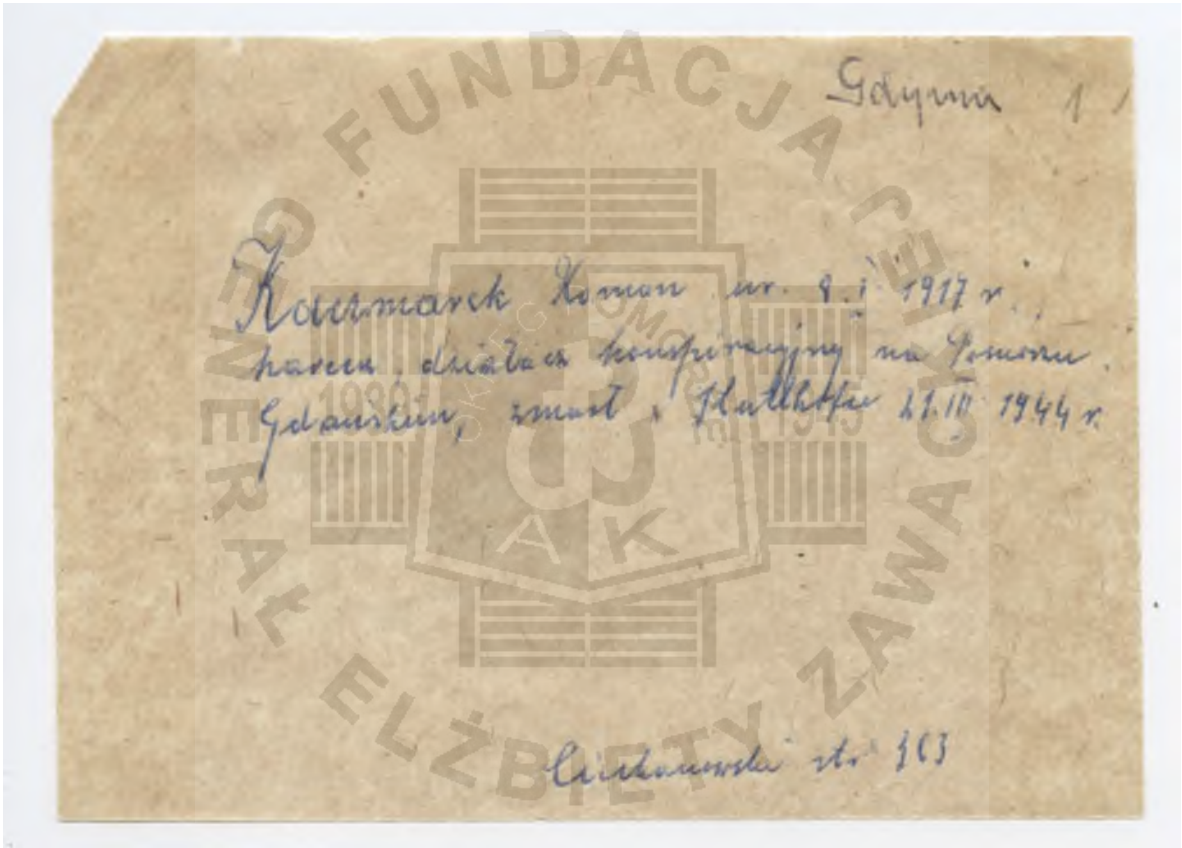 Gdynia 1
Kaczmarek Roman ur. 8.I 1917 r.,
harcerz działacz konspiracyjny na Pomorzu
Gdańskim, zmarł w Stutthofie 21.III 1944 r.
Ciechanowski str 363
FUNDACJA GENERAŁ ELŻBIETY ZAWACKIEJ
OKRĘG POMORZE
1939 1945
AK